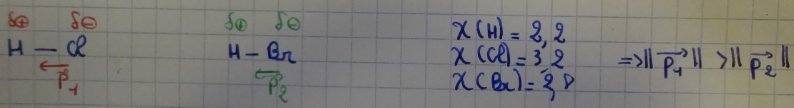 δ⊕ δ⊖
H — Cl
p₁
δ⊕ δ⊖
H – Br
p₂
χ(H) = 2,2
χ(Cl) = 3,2
χ(Br) = 2,8
=> ||p₁|| > ||p₂||